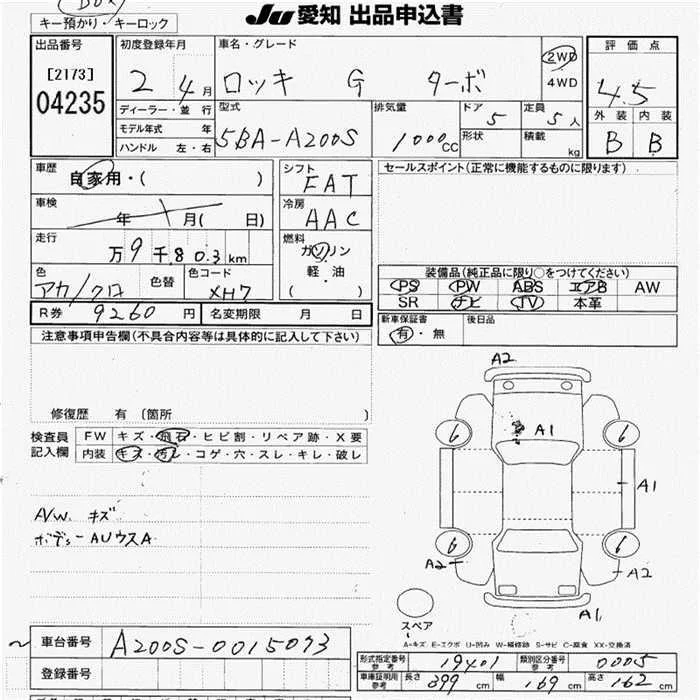 BOX
キー預かり・キーロック
JU 愛知 出品申込書
出品番号
[2173]
04235
初度登録年月
2 4月
車名・グレード
ロッキ G ターボ
2WD
4WD
評価点
4.5
外装 内装
B B
ディーラー・並 行
モデル年式 年
ハンドル 左・右
型式
5BA-A200S
排気量
1000CC
ドア
5
形状
定員
5人
積載
kg
車歴
自家用・( )
車検
年 月( 日)
走行
万9千803km
色
アカ/クロ
色替
色コード
XH7
シフト
FAT
冷房
AAC
燃料
ガソリン
軽・油
( )
セールスポイント(正常に機能するものに限ります)
装備品(純正品に限り○をつけてください)
PS PW ABS エアB AW
SR ナビ TV 本革
R券 9260円
名変期限 月 日
新車保証書
有・無
後日品
注意事項申告欄(不具合内容等は具体的に記入して下さい)
修復歴 有 〔箇所 〕
検査員
記入欄
FW キズ・飛石・ヒビ割・リペア跡・X要
内装 キズ・汚レ・コゲ・穴・スレ・キレ・破レ
A/W. キズ
ボデー AUウスA
A2
A1
6 6
A1
6 6
A2 A2
A1
スペア
A-キズ E-エクボ U-凹み W-補修跡 S-サビ C-腐食 XX-交換済
車台番号
A200S-0015073
登録番号
形式指定番号
参考
19401
類別区分番号
参考
0005
車庫証明用
参考
長さ 399cm
幅 169cm
高さ 162cm